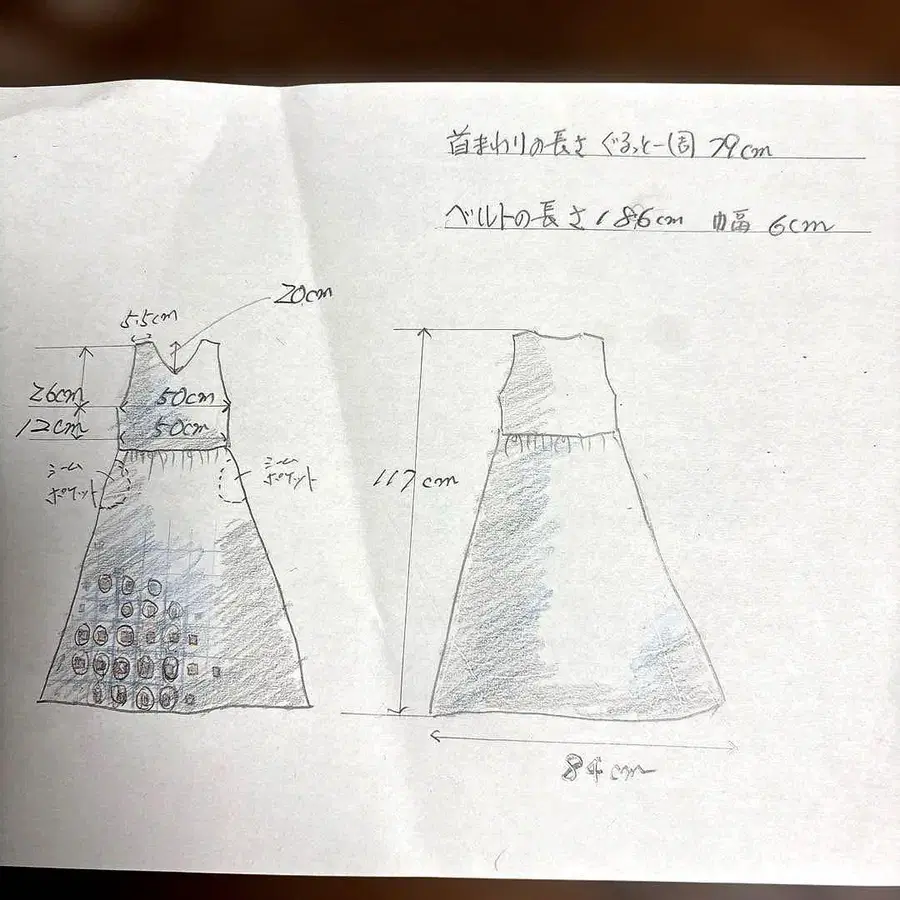 首まわりの長さ ぐるっと一周 79cm
ベルトの長さ 186cm 巾幅 6cm
20cm
5.5cm
26cm
50cm
12cm
50cm
シーム
ポケット
シーム
ポケット
117cm
84cm